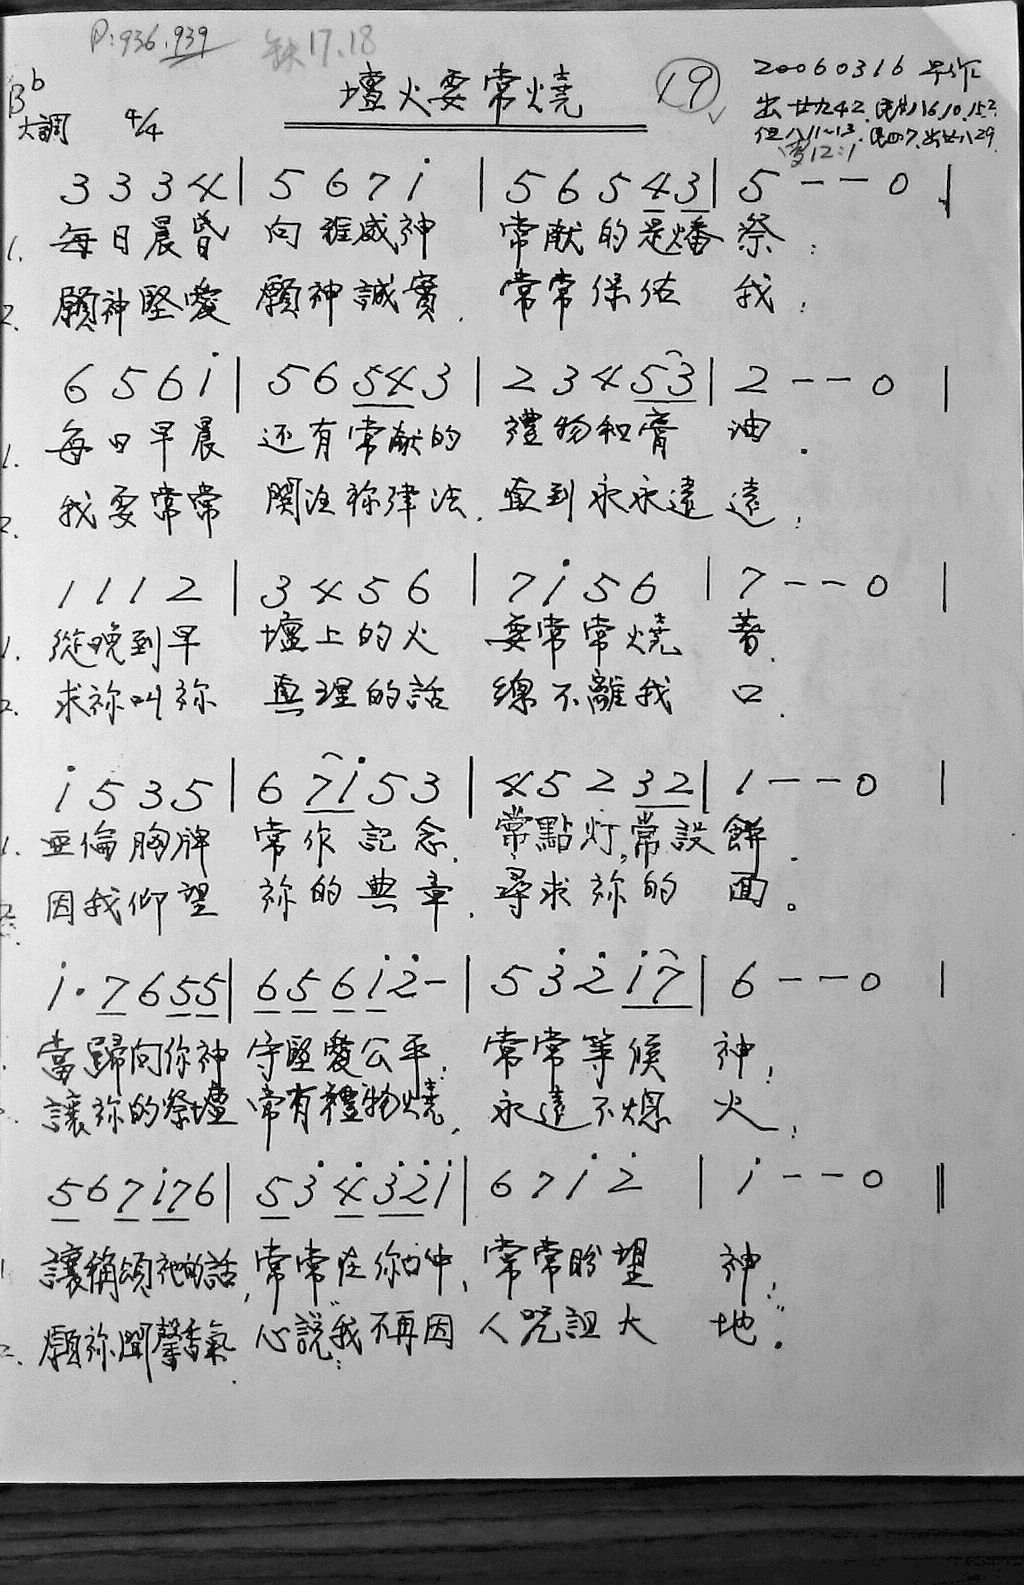 P:936.939 缺17.18
壇火要常燒 19 20060316 早作
B♭大調 4/4
3 3 3 4 | 5 6 7 i | 5 6 5 4 3 | 5 - - 0 |
1. 每日晨昏 向雅威神 常献的是燔祭:
2. 願神堅愛 願神誠實. 常常保佑 我:
6 5 6 i | 5 6 5 4 3 | 2 3 4 5 3 | 2 - - 0 |
1. 每日早晨 还有常献的 禮物和膏 油.
2. 我要常常 関注祢律法. 直到永永遠 遠:
1 1 1 2 | 3 4 5 6 | 7 i 5 6 | 7 - - 0 |
1. 從晚到早 壇上的火 要常常燒 著.
2. 求祢叫祢 真理的話 總不離我 口.
i 5 3 5 | 6 7 i 5 3 | 4 5 2 3 2 | 1 - - 0 |
1. 亞倫胸牌 常作記念. 常點灯,常設 餅.
2. 因我仰望 祢的典章. 尋求祢的 面。
i· 7 6 5 5 | 6 5 6 i 2 - | 5 3 2 i 7 | 6 - - 0 |
當歸向你神 守堅愛公平. 常常等候 神,
讓祢的祭壇 常有禮物燒. 永遠不熄 火:
5 6 7 i 7 6 | 5 3 4 3 2 i | 6 7 i 2 | i - - 0 ‖
1. 讓稱頌祂的話, 常常在你口中, 常常盼望 神,
2. 願祢聞馨香氣. 心說:“我不再因 人咒詛大 地。”